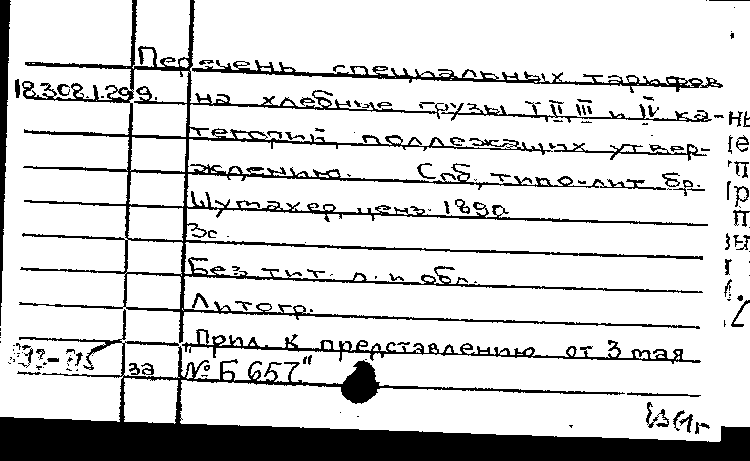 Перечень специальных тарифов
18.308.1.299. на хлебные грузы I, II, III и IV ка-
тегорий, подлежащих утвер-
ждению. Спб, типо-лит бр.
Шумахер, ценз. 1890.
3с.
Без тит. л. и обл.
Литогр.
"Прил. к представлению от 3 мая
за № Б 657."